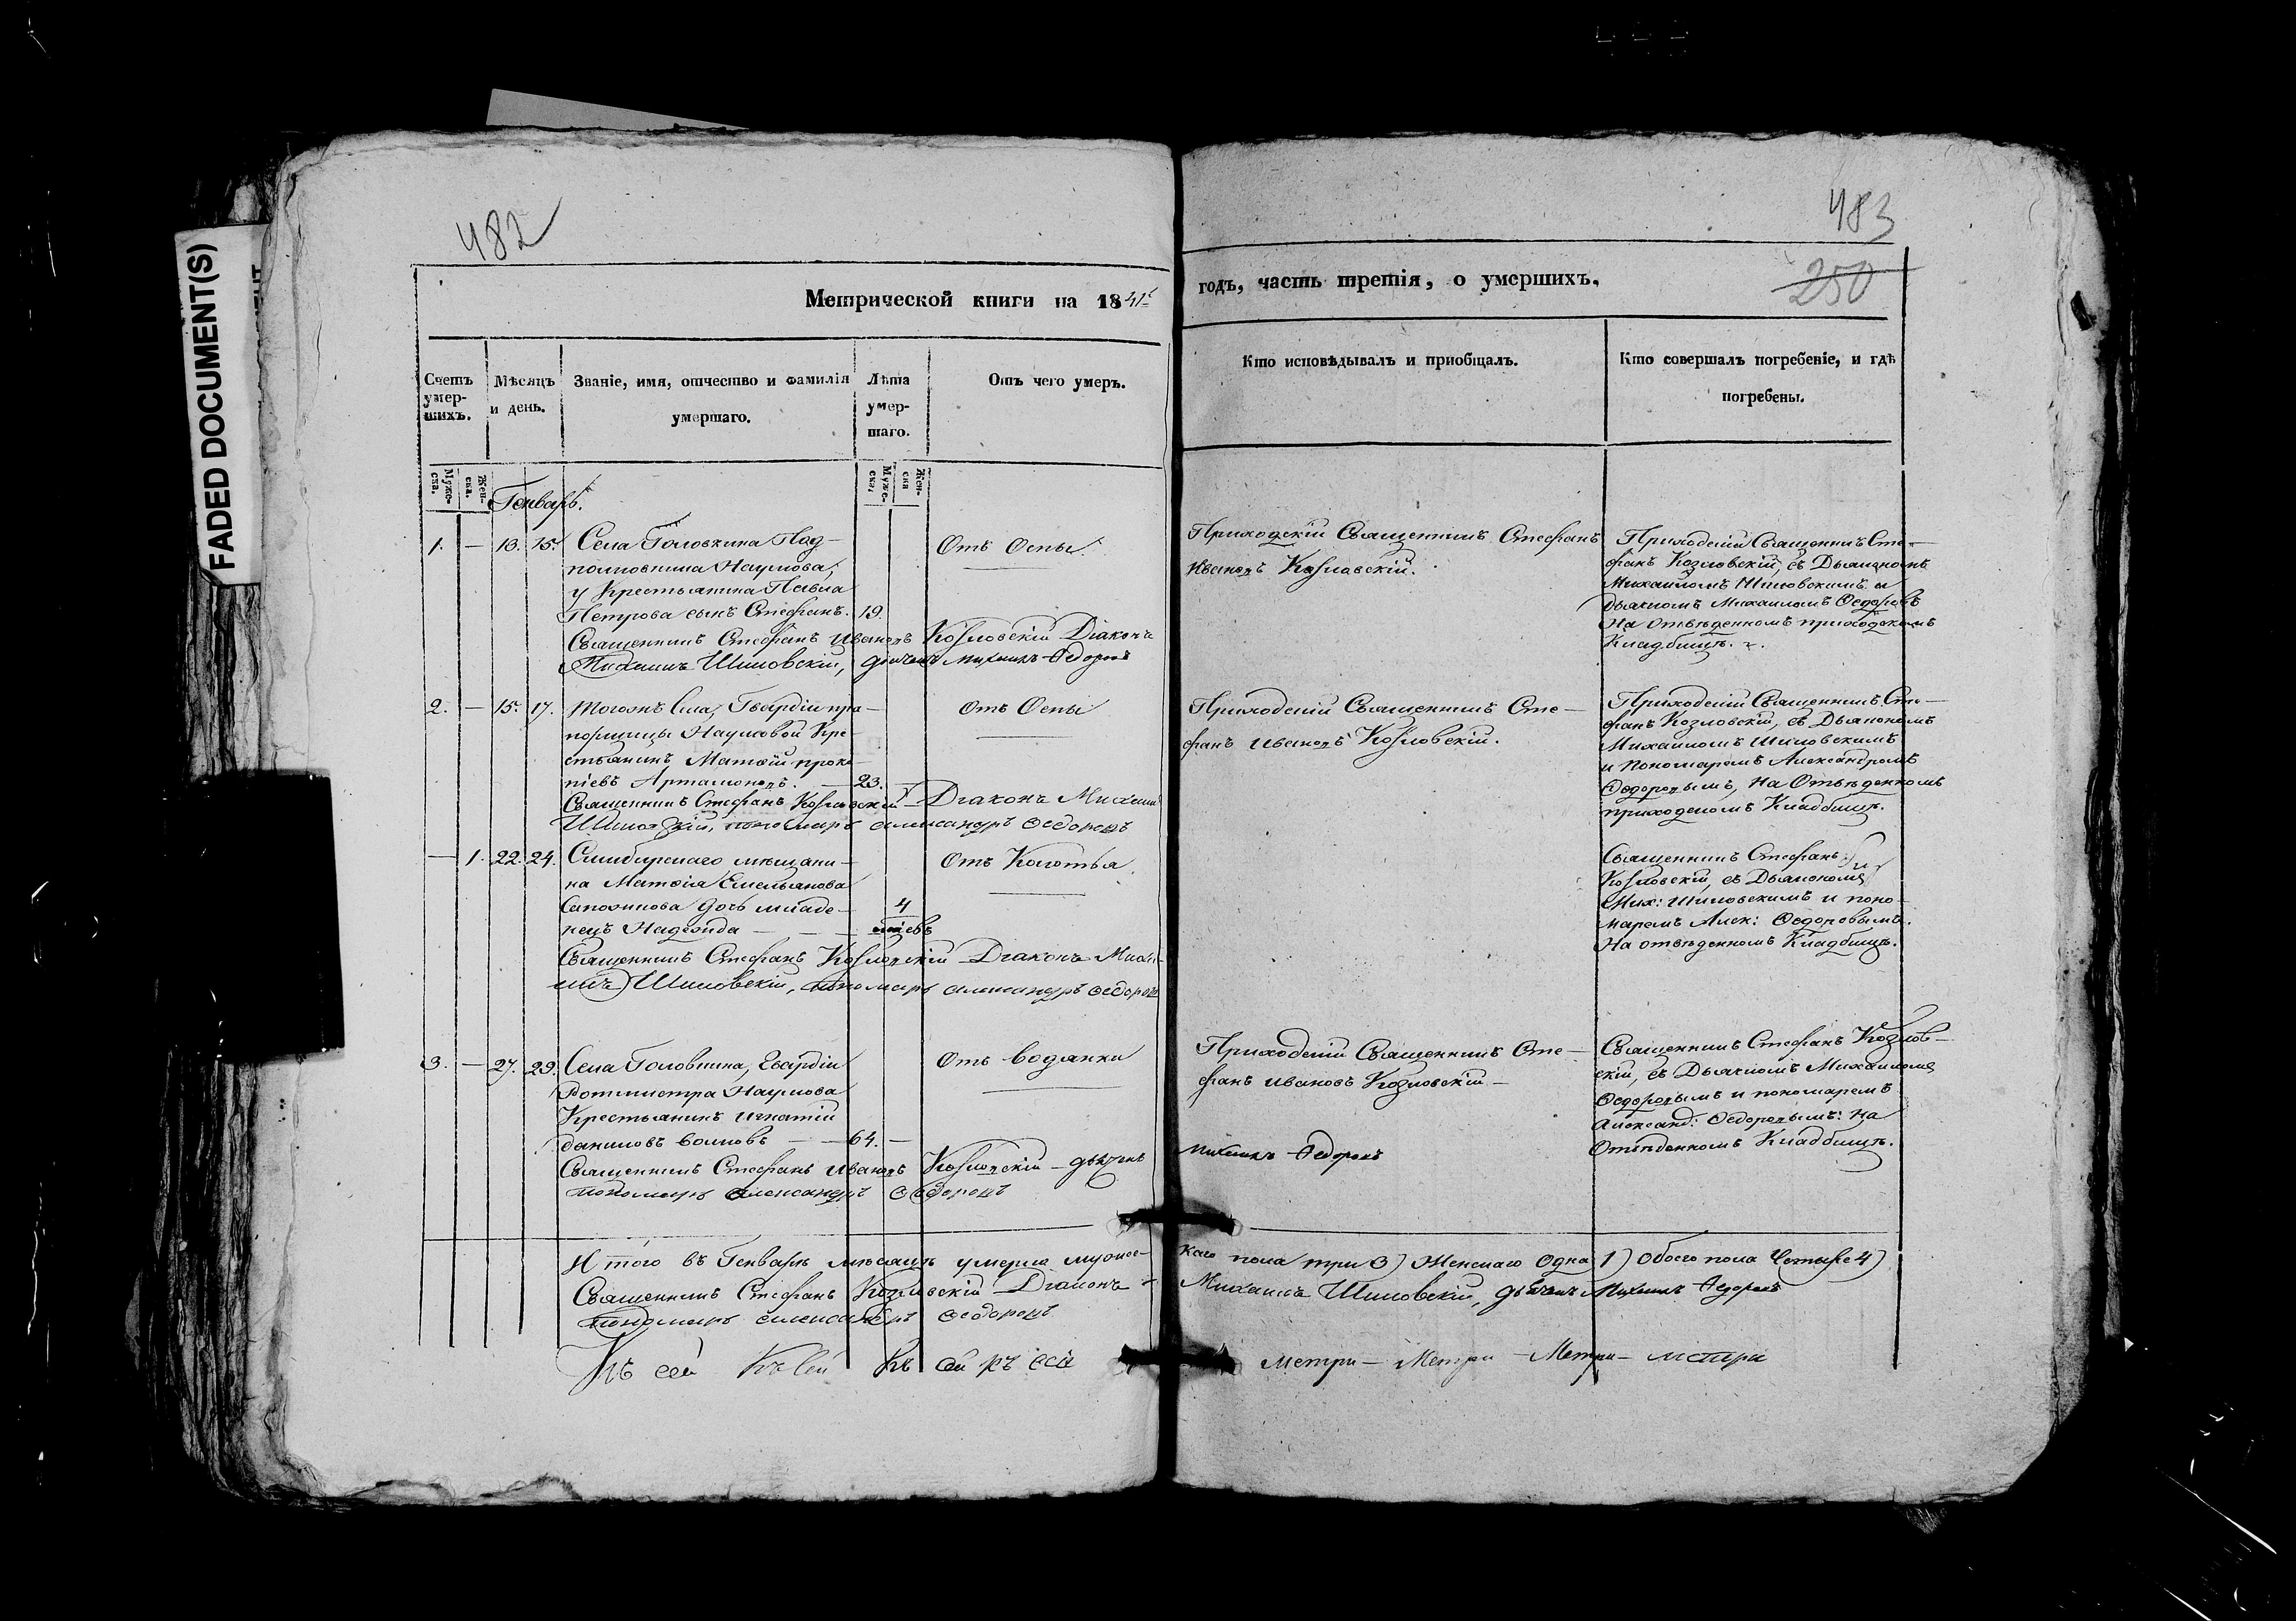 FADED DOCUMENT(S)
482
483
250
Метрической книги на 1841й
годъ, часть третія, о умершихъ.
Счетъ умер-шихъ.
Мѣсяцъ и день.
Званіе, имя, отчество и фамилія умершаго.
Лѣта умер-шаго.
Отъ чего умеръ.
Кто исповѣдывалъ и пріобщалъ.
Кто совершалъ погребеніе, и гдѣ погребены.
Муже-ска.
Жен-ска.
Муже-ска,
Жен-ска
Генварь.
1. — 13. 15.
Села Головкина Под-
полковника Наумова,
у Крестьянина Павла
Петрова сынъ Стефанъ. 19.
Отъ Оспы
Священникъ Стефанъ Ивановъ Козловскій Діаконъ
Михаилъ Шиловскій, дьячекъ Михаилъ Федоровъ
Приходскій Священникъ Стефанъ
Ивановъ Козловскій.
Приходскій Священникъ Сте-
фанъ Козловскій, съ Дьякономъ
Михаиломъ Шиловскимъ и
дьячкомъ Михаиломъ Ѳедоровъ
На отвѣденномъ приходскомъ
Кладбищѣ.
2. — 15. 17.
Тогожъ Села, Гвардіи пра-
порщицы Наумовой Кре-
стьянинъ Матвій проко-
піевъ Артамоновъ. — 23. —
Отъ Оспы
Священникъ Стефанъ Козловскій Діаконъ Михаилъ
Шиловскій, пономарь Александръ Ѳедоровъ
Приходскій Священникъ Сте-
фанъ Ивановъ Козловскій.
Приходскій Священникъ Сте-
фанъ Козловскій, съ Дьякономъ
Михаиломъ Шиловскимъ
и Пономаремъ Александромъ
Ѳедоровымъ, На Отвѣденномъ
приходскомъ Кладбищѣ.
— 1. 22. 24.
Симбирскаго мѣщани-
на Матвія Емельянова
Сапожникова дочь младе-
нецъ Надежда — — 4
Отъ Колотья
Священникъ Стефанъ Козловскій Діаконъ Миха-
илъ Шиловскій, пономарь Александръ Ѳедоровъ
Священникъ Стефанъ
Козловскій, съ Дьякономъ
Мих: Шиловскимъ и поно-
маремъ Алек: Ѳедоровымъ.
На отвѣденномъ Кладбищѣ.
3. — 27. 29.
Села Головкина, Гвардіи
Ротмистра Наумова
Крестьянинъ Игнатій
Даниловъ Волковъ — — 64. —
Отъ водянки
Священникъ Стефанъ Ивановъ Козловскій — дьячекъ
Михаилъ Федоровъ
пономарь Александръ Ѳедоровъ
Приходскій Священникъ Сте-
фанъ Ивановъ Козловскій —
Священникъ Стефанъ Козлов-
скій, съ Дьячкомъ Михаиломъ
Ѳедоровымъ и пономаремъ
Александ: Ѳедоровымъ: На
Отвѣденномъ Кладбищѣ.
Итого въ Генварѣ мѣсяцѣ умерло мужес-
каго пола три 3) Женскаго Одна 1) Обоего пола Четыре 4)
Священникъ Стефанъ Козловскій Діаконъ
Михаилъ Шиловскій, дьячекъ Михаилъ Федоровъ
пономарь Александръ Ѳедоровъ
Къ сей Къ Сей Къ сей
Метри — Метри — Метри — метри